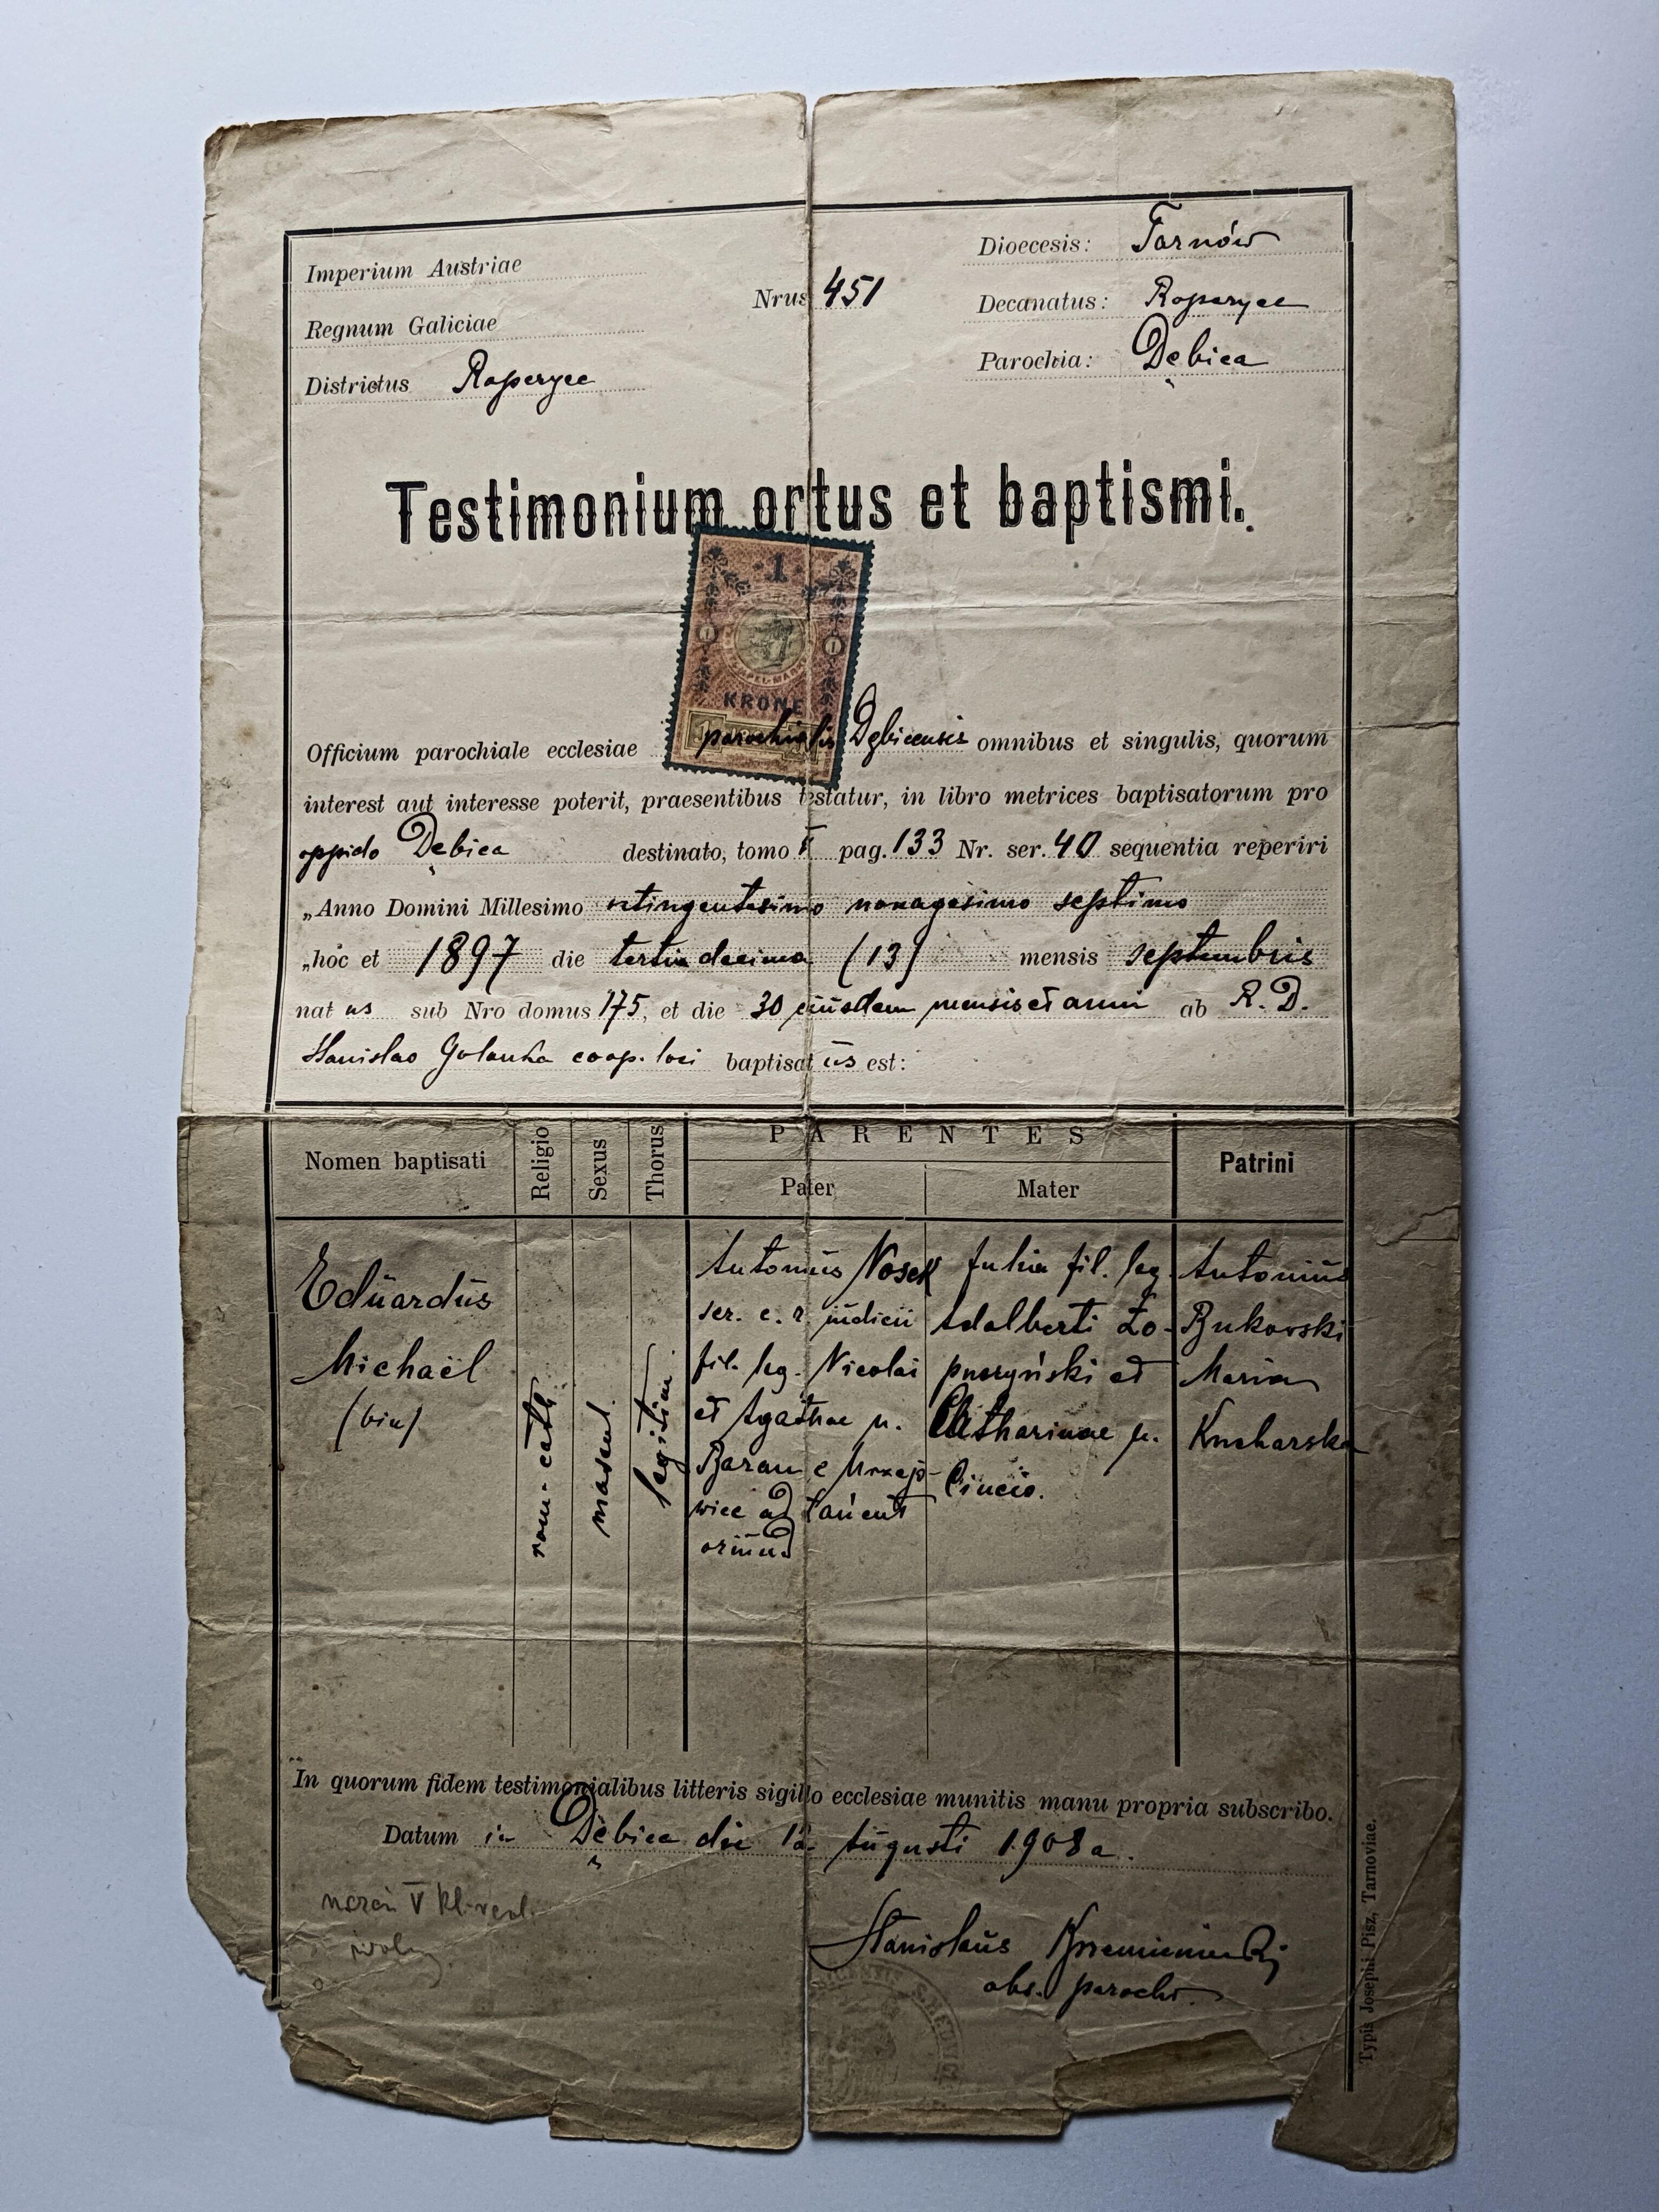 Imperium Austriae
Regnum Galiciae
Districtus Ropczyce
Nrus 451
Dioecesis: Tarnów
Decanatus: Ropczyce
Parochia: Dębica
Testimonium ortus et baptismi.
1
1 1
STEMPEL-MARKE
KRONE
Officium parochiale ecclesiae parochialis Dębicensis omnibus et singulis, quorum
interest aut interesse poterit, praesentibus testatur, in libro metrices baptisatorum pro
oppido Dębica destinato, tomo pag. 133 Nr. ser. 40 sequentia reperiri
„Anno Domini Millesimo octingentesimo nonagesimo septimo
„hoc et 1897 die tertia decima (13) mensis septembris
natus sub Nro domus 175, et die 30 eiusdem mensis et anni ab R. D.
Stanislao Golonka coop. loci baptisatus est:
Nomen baptisati Religio Sexus Thorus PARENTES Patrini
Pater Mater
Eduardus
Michaël
(bin)
rom-cath
mascul.
legitim.
Antonius Nosek
ser. c. r. judicii
fil. leg. Nicolai
et Agathae n.
Baran e
wice ad Łańcut
oriund
Julia fil. leg.
Adalberti Ło-
puszyński et
Catharinae n.
Antonius
Bukowski
Maria
Kucharska
In quorum fidem testimonialibus litteris sigillo ecclesiae munitis manu propria subscribo.
Datum in Dębica die Augusti 1908 a.
Stanislaus
abs. parocho.
S. HEDVIG
Typis Josephi Pisz, Tarnoviae.